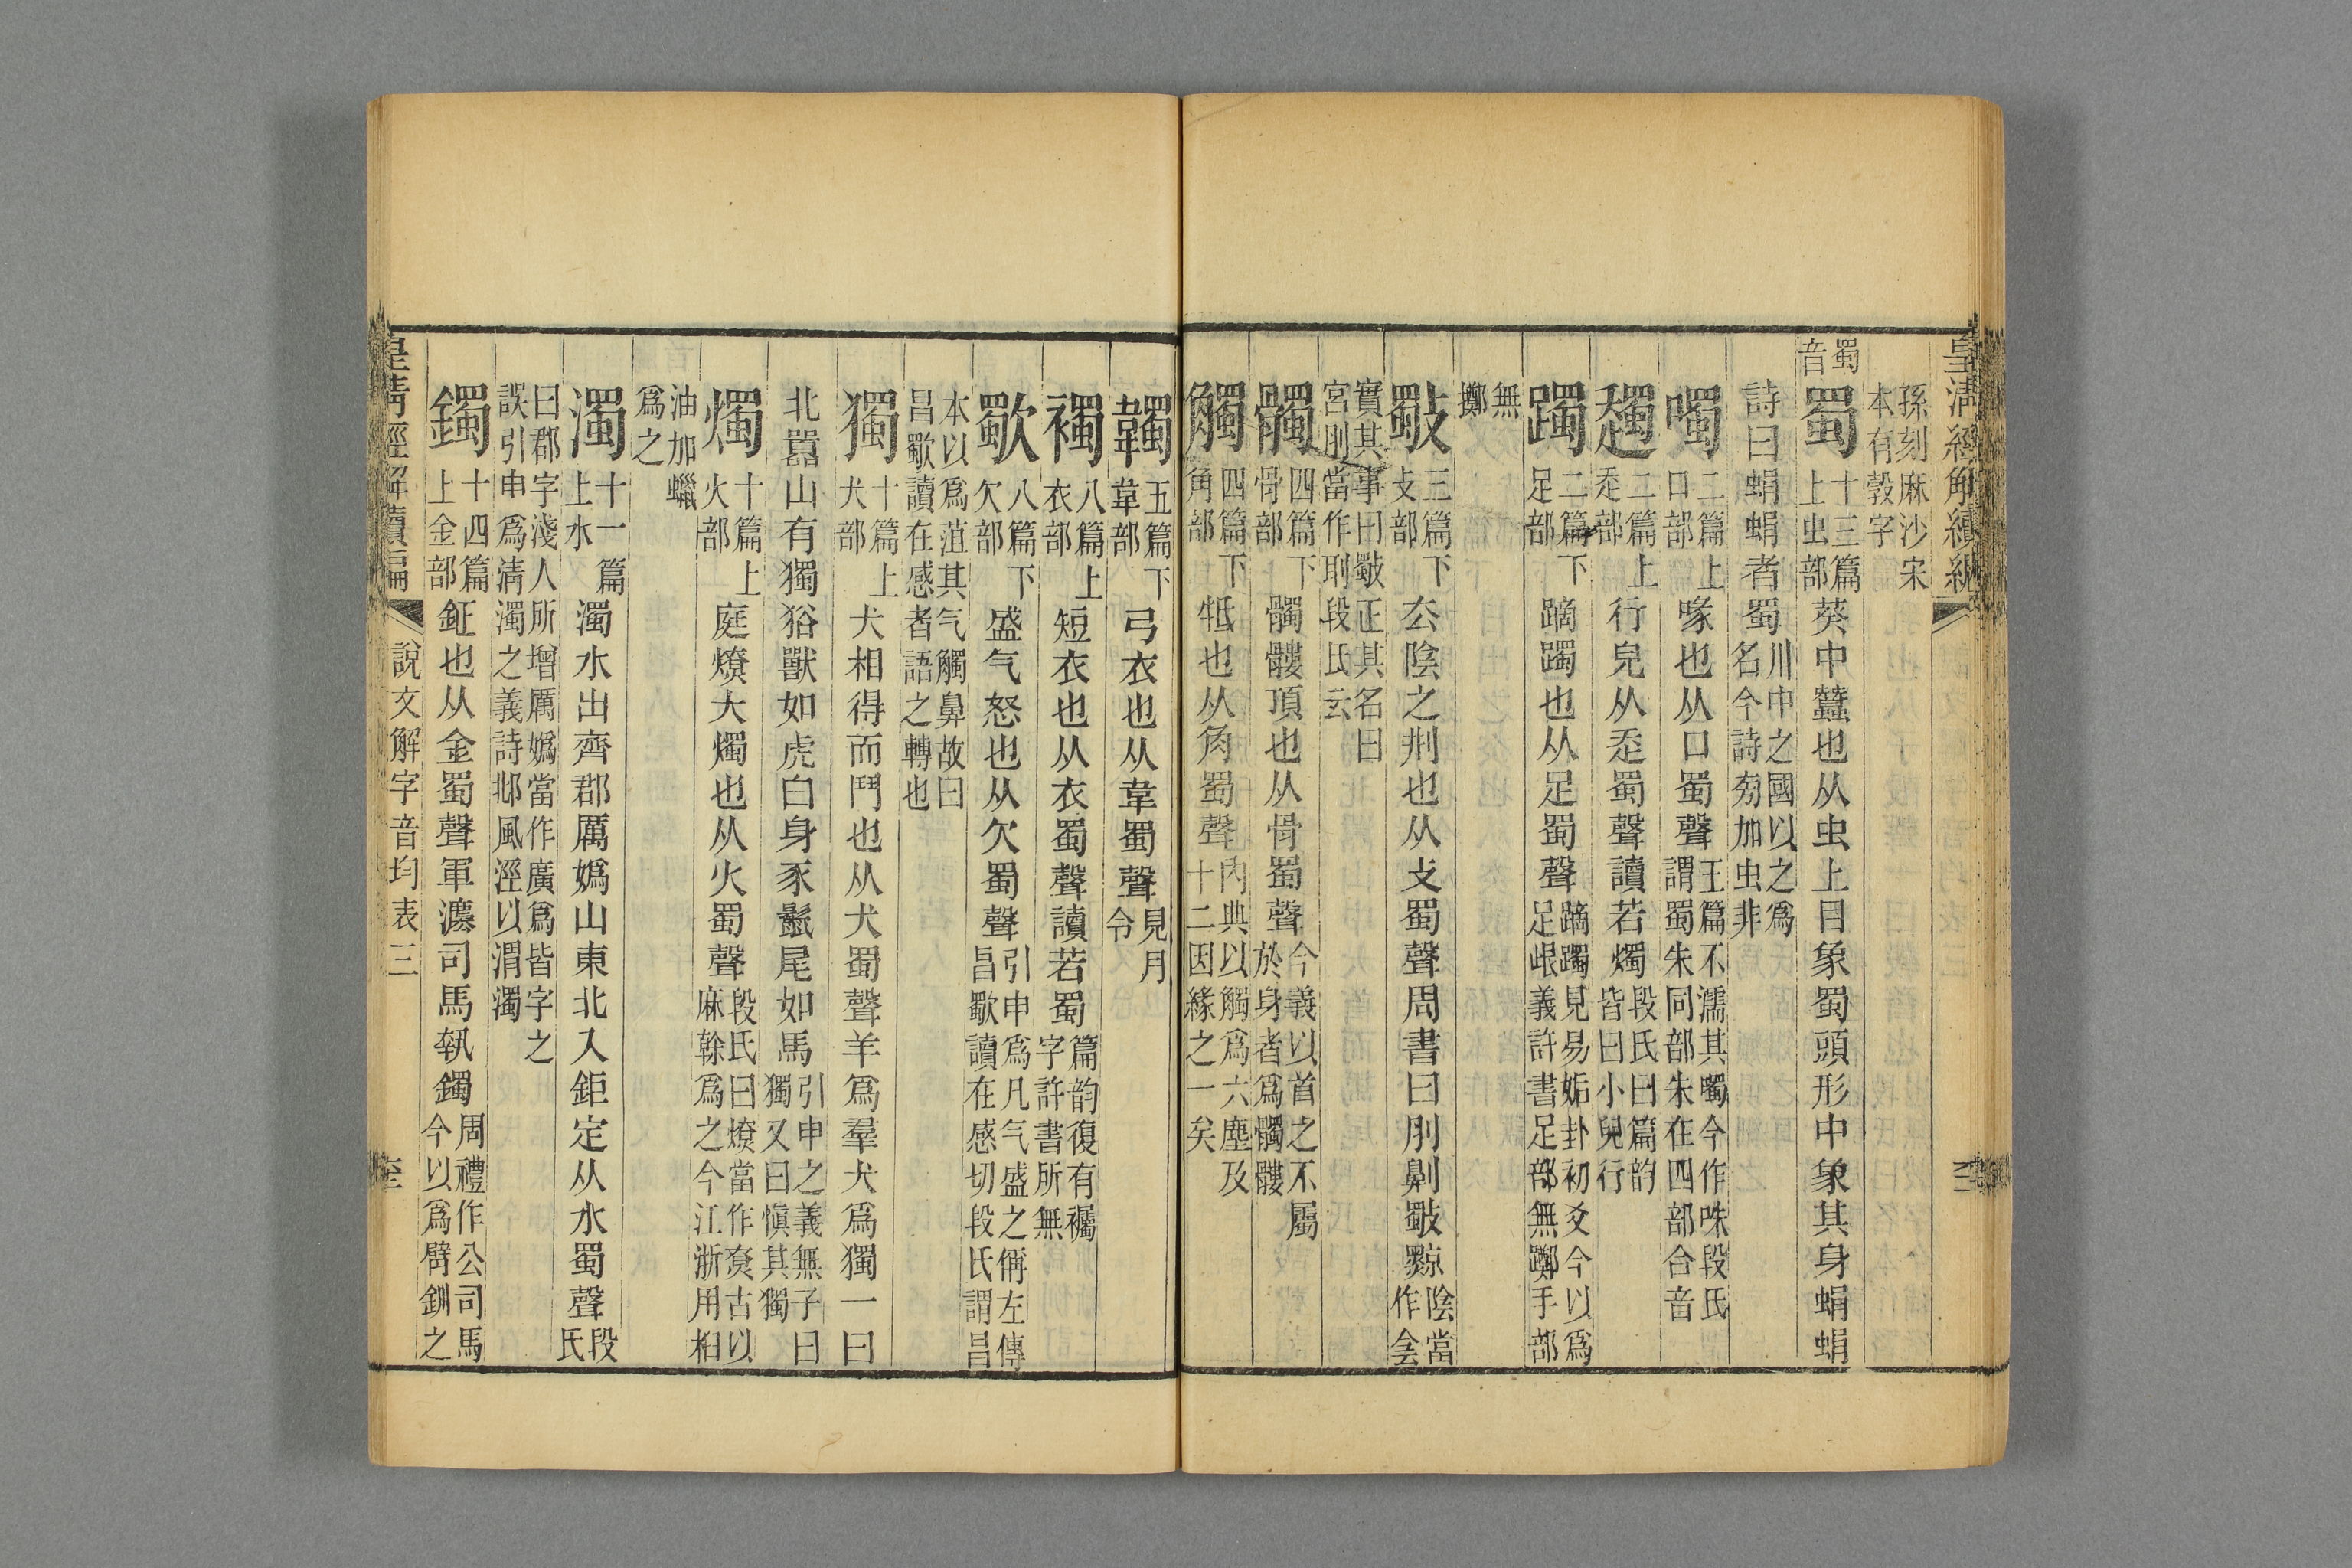 皇清經解續編
孫刻麻沙宋本有㝅字
蜀音
蜀十三篇上虫部葵中蠶也从虫上目象蜀頭形中象其身蜎蜎
詩曰蜎蜎者蜀川中之國以之爲名今詩旁加虫非
噣二篇上口部喙也从口蜀聲王篇不濡其噣今作咮段氏謂蜀朱同部朱在四部合音
趨二篇上辵部行皃从辵蜀聲讀若燭段氏曰篇韵皆曰小兒行
躅二篇下足部蹢躅也从足蜀聲蹢躅見易姤卦初爻今以爲足垊義許書足部無躑手部
無擲
斀三篇下攴部厺陰之㓝也从攴蜀聲周書曰刖劓斀黥陰當作侌
實其事曰斀正其名曰宮刖當作刵段氏云
髑四篇下骨部髑髏頂也从骨蜀聲今義以首之不屬於身者爲髑髏
觸四篇下角部牴也从角蜀聲內典以觸爲六塵及十二因緣之一矣
韣五篇下韋部弓衣也从韋蜀聲見月令
襡八篇上衣部短衣也从衣蜀聲讀若蜀篇韵復有襹字許書所無
歜八篇下欠部盛气怒也从欠蜀聲引申爲凡气盛之偁左傳昌歜讀在感切段氏謂昌
本以爲菹其气觸鼻故曰昌歜讀在感者語之轉也
獨十篇上犬部犬相得而鬥也从犬蜀聲羊爲羣犬爲獨一曰
北嚻山有獨𤞞獸如虎白身豕鬛尾如馬引申之義無子曰獨又曰愼其獨
燭十篇上火部庭燎大燭也从火蜀聲段氏曰燎當作尞古以麻榦爲之今江浙用桕
油加蠟爲之
濁十一篇上水濁水出齊郡厲嬀山東北入鉅定从水蜀聲段氏
曰郡字淺人所增厲嬀當作廣爲皆字之誤引申爲淸濁之義詩邶風涇以渭濁
鐲十四篇上金部鉦也从金蜀聲軍灋司馬執鐲周禮作公司馬今以爲臂釧之
皇清經解續編 說文解字音均表三